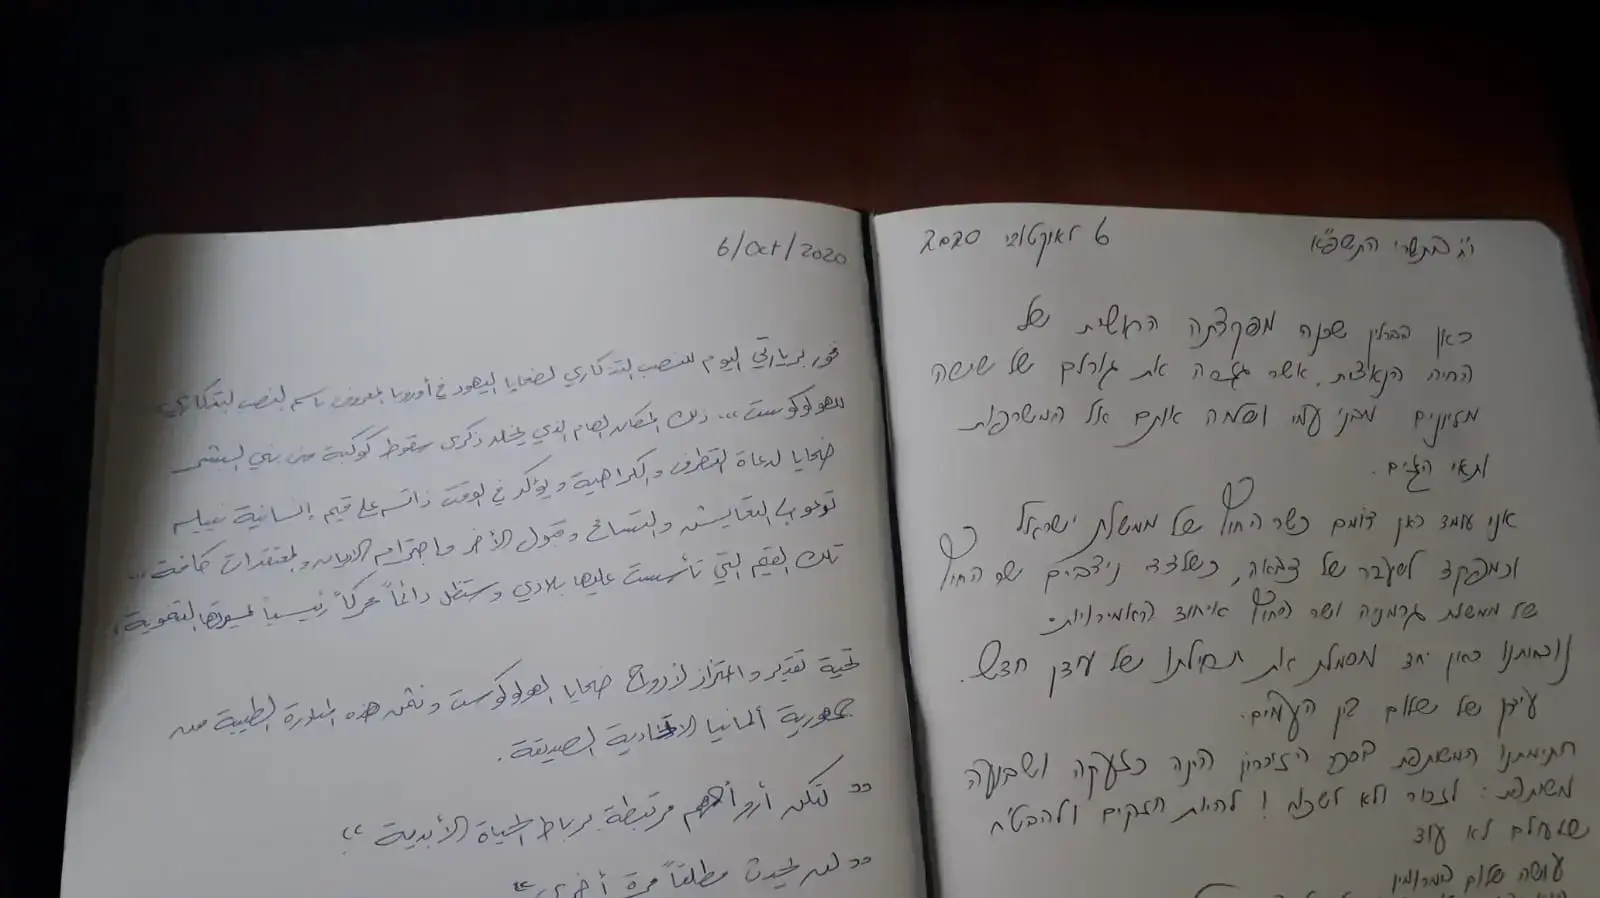 6/Oct/2020
فخور بزيارتي اليوم للنصب التذكاري لضحايا اليهود في أوروبا المعروف باسم النصب التذكاري
للهولوكوست،،، ذلك المكان الهام الذي يخلد ذكرى سقوط كوكبة من بني البشر
ضحايا لدعاة التطرف والكراهية ويؤكد في الوقت ذاته على قيم إنسانية نبيلة
تدعو إلى التعايش والتسامح وقبول الآخر واحترام الأديان والمعتقدات كافة ،،،
تلك القيم التي تأسست عليها بلادي وستظل دائماً محركاً رئيسياً لمسيرتها التنموية.
تحية تقدير واعتزاز لأرواح ضحايا الهولوكوست ونثمن هذه المبادرة الطيبة من
جمهورية ألمانيا الاتحادية الصديقة.
"لتكن أرواحهم مرتبطة برباط الحياة الأبدية"
"لن يحدث مطلقاً مرة أخرى"
י"ח בתשרי התשפ"א 6 לאוקטובר 2020
כאן בברלין שכנה מפקדתה הראשית של
החיה הנאצית, אשר גזרה את גורלם של שישה
מליונים מבני עמי ושלחה אותם אל המשרפות
ותאי הגזים.
אני עומד כאן דומם כשר החוץ של ממשלת ישראל
וכמפקד לשעבר של צבאה, כשלצדי ניצבים שר החוץ
של ממשלת גרמניה ושר החוץ איחוד האמירויות.
נוכחותנו כאן יחד מסמלת את תחילתו של עידן חדש.
עידן של שלום בין העמים.
חתימתנו המשותפת בספר הזיכרון הינה כזעקה ושבועה
משותפת: לזכור ולא לשכוח! להיות חזקים ולהבטיח
שלעולם לא עוד
עושה שלום במרומיו